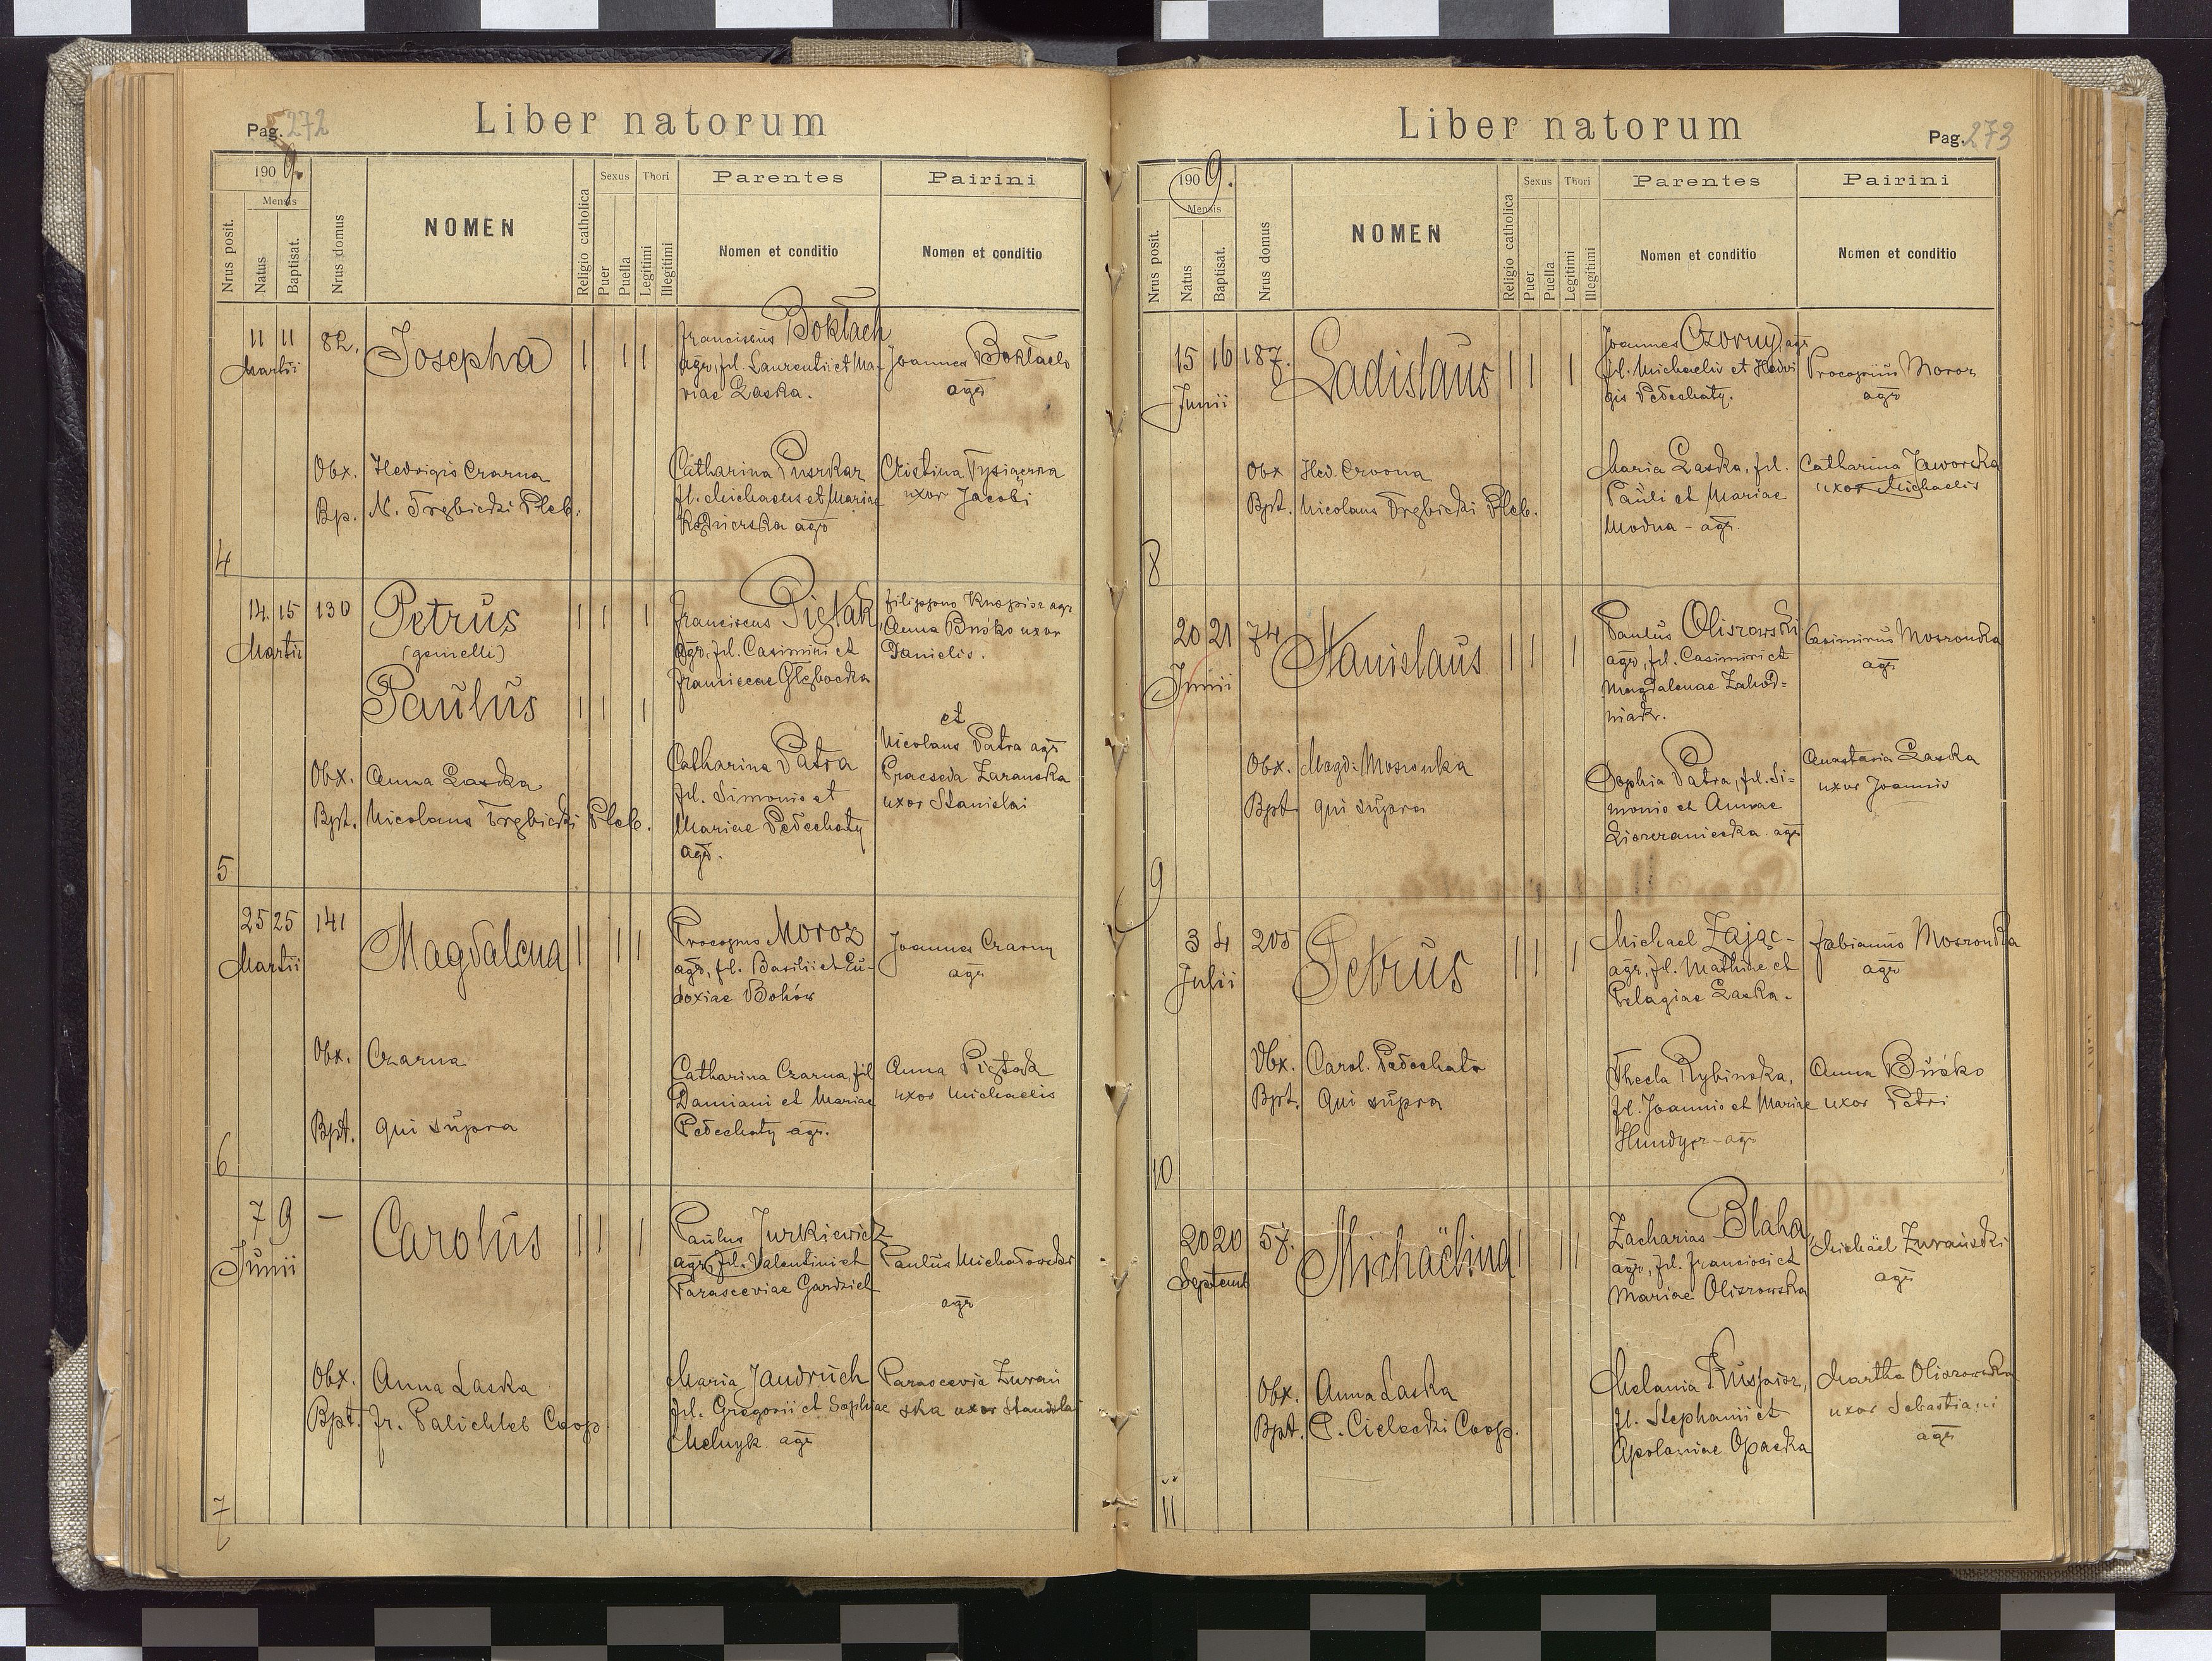 Pag. 272
Liber natorum
1909.
Mensis
Nrus posit.
Natus
Baptisat.
Nrus domus
NOMEN
Religio catholica
Sexus
Puer
Puella
Thori
Legitimi
Illegitimi
Parentes
Nomen et conditio
Pairini
Nomen et conditio
4
11 11
Martii
82.
Josepha
1 1 1
Franciscus Boktach
agr, fil. Laurentii et Ma-
riae Laska.
Joannes
agr
Obx. Hedvigis Czarna
Bp. N. Trębicki Pleb.
Catharina Puszkar
fl. Michaelis et Mariae
agr
Cristina
uxor Jacobi
5
14. 15
Martii
130
Petrus
(gemelli)
Paulus
1 1 1
1 1 1
Franciscus Piętak,
agr, fil. Casimiri et
Franciscae Głębocka
Filippus agr
Anna Buśko uxor
Danielis.
et
Nicolaus Patra agr
Praxeda Zaranska
uxor Stanislai
Obx. Anna Laska
Bpt. Nicolaus Trębicki Pleb.
Catharina Patra
fil. Simonis et
Mariae Pedechaty
agr.
6
25 25
Martii
141
Magdalena
1 1 1
Procopius Moroz
agr, fl. Basilii et Eu-
doxiae Bohów
Joannes Czarny
agr
Obx. Czarna
Bpt. qui supra
Catharina Czarna, fil
Damiani et Mariae
Pedechaty agr.
Anna Piętak
uxor Michaelis
7
7 9
Junii
—
Carolus
1 1 1
Paulus Jurkiewicz
agr, fil. Valentini et
Parasceviae Gardziel
Paulus Michałowski
agr
Obx. Anna Laska
Bpt. Fr. Palichleb Coop.
Maria Jandruch
fil. Gregorii et Sophiae
Melnyk agr
Parascevia Zurań
ska uxor Stanisla
Liber natorum
Pag. 273
1909.
Mensis
Nrus posit.
Natus
Baptisat.
Nrus domus
NOMEN
Religio catholica
Sexus
Puer
Puella
Thori
Legitimi
Illegitimi
Parentes
Nomen et conditio
Pairini
Nomen et conditio
8
15 16
Junii
187.
Ladislaus
1 1 1
Joannes Czorny, agr
fil. Michaelis et Hedvi
gis Pedechaty.
Procopius Moroz
agr
Obx Hed. Czorna
Bpt. Nicolaus Trębicki Pleb.
Maria Laska, fil.
Pauli et Mariae
Modna - agr.
Catharina Jaworska
uxor Michaelis
9
20 21
Junii
74
Stanislaus
1 1 1
Paulus Oliszowski
agr, fil. Casimiri et
Magdalenae Zahod-
niak.
Casimirus Mosronka
agr
Obx. Magd. Mosronka
Bpt. qui supra
Sophia Patra, fil. Si-
monis et Annae
agr
Anastasia Laska
uxor Joannis
10
3 4
Julii
205
Petrus
1 1 1
Michael Zając -
agr, fil. Mathiae et
Pelagiae Laska.
Fabianus Mosronka
agr
Obx. Carol. Pedechata
Bpt. Qui supra
Thecla Rybinska,
fil. Joannis et Mariae
Hundycz - agr
Anna Buśko
uxor Petri
11
20 20
Septemb
57.
Michaëlina
1 1 1
Zacharias Blaha,
agr, fil. Francisci et
Mariae Oliszowska
Michaël Zurański
agr
Obx. Anna Laska
Bpt. C. Cielecki Coop.
Melania
fl. Stephani et
Apoloniae Opacka
Martha Oliszowska
uxor Sebastiani
agr